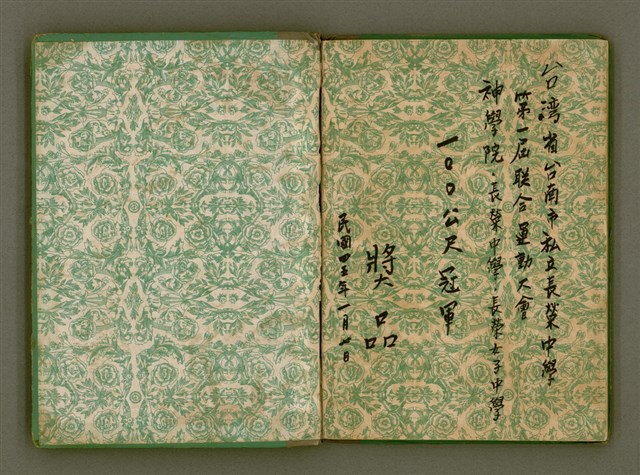 台湾省台南市私立長榮中學
第一届联合運動大會
神學院·長榮中學·長榮女子中學
一〇〇公尺冠軍
奬品
民國四五年一月廿日